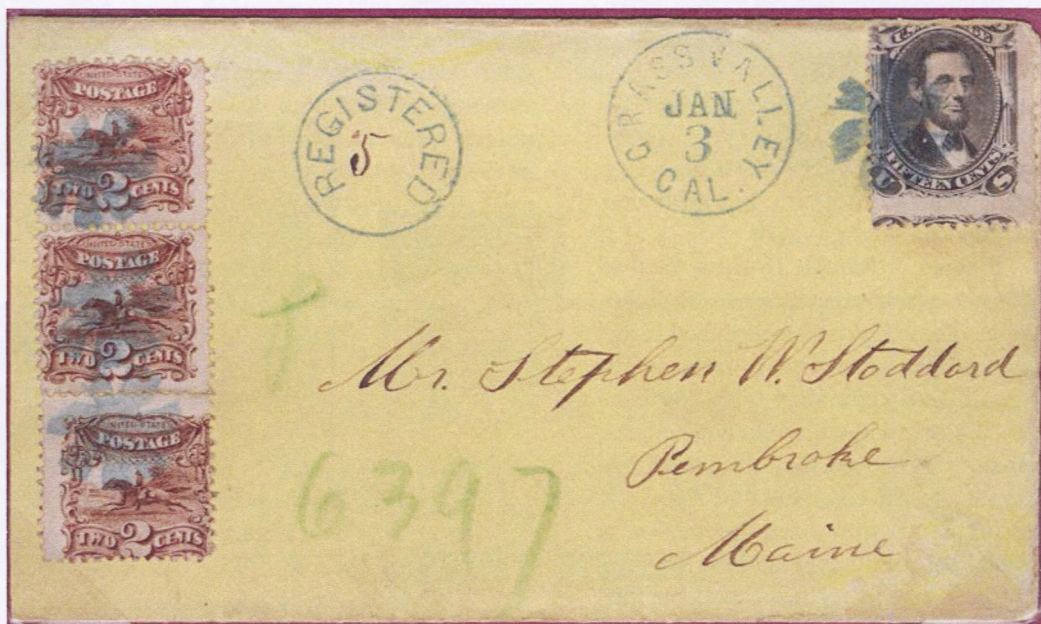 UNITED STATES
POSTAGE
TWO 2 CENTS
UNITED STATES
POSTAGE
TWO 2 CENTS
UNITED STATES
POSTAGE
TWO 2 CENTS
REGISTERED
5
GRASS VALLEY
JAN
3
CAL.
U POSTAGE S
FIFTEEN CENTS
U S
Mr. Stephen W. Stoddard
Pembroke
Maine
6397